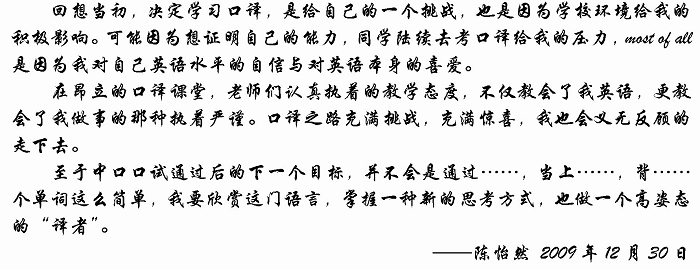 回想当初，决定学习口译，是给自己的一个挑战，也是因为学校环境给我的
积极影响。可能因为想证明自己的能力，同学陆续去考口译给我的压力，most of all
是因为我对自己英语水平的自信与对英语本身的喜爱。
在昂立的口译课堂，老师们认真执着的教学态度，不仅教会了我英语，更教
会了我做事的那种执着严谨。口译之路充满挑战，充满惊喜，我也会义无反顾的
走下去。
至于中口口试通过后的下一个目标，并不会是通过……，当上……，背……
个单词这么简单，我要欣赏这门语言，掌握一种新的思考方式，也做一个高姿态
的“译者”。
——陈怡然 2009 年 12 月 30 日